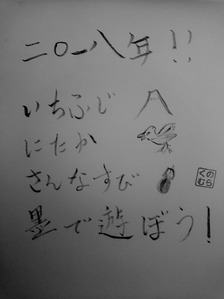 二〇一八年!!
いちふじ
にたか
さんなすび
くのむら
墨で遊ぼう!